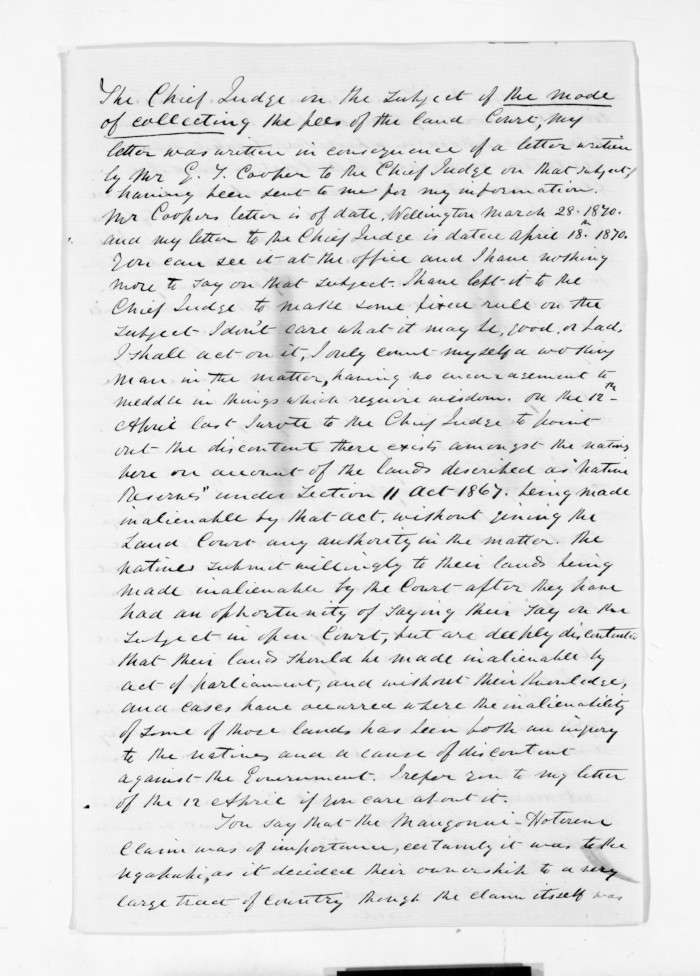 The Chief Judge on the subject of the mode
of collecting the fees of the land Court, my
letter was written in consequence of a letter written
by Mr G. S. Cooper to the Chief Judge on that subject,
having been sent to me for my information.
Mr Coopers letter is of date, Wellington March 28. 1870.
and my letter to the Chief Judge is dated April 18th 1870.
You can see it at the office and I have nothing
more to say on that subject. I have left it to the
Chief Judge to make some fixed rule on the
subject I don't care what it may be, good, or bad,
I shall act on it, I only count myself a working
man in the matter, having no encouragement to
meddle in things which require wisdom. On the 12th
April last I wrote to the Chief Judge to point
out the discontent there exists amongst the natives
here on account of the lands described as "Native
Reserves" under Section 11 Act 1867. being made
inalienable by that act, without giving the
Land Court any authority in the matter. The
natives submit willingly to their lands being
made inalienable by the Court after they have
had an opportunity of saying their say on the
subject in open Court, but are deeply discontented
that their lands should be made inalienable by
act of parliament, and without their knowledge,
and cases have occurred where the inalienability
of some of those lands has been both an injury
to the natives and a cause of discontent
against the Government. I refer you to my letter
of the 12 April if you care about it.
You say that the Maugonui - Hotorene
Claim was of importance, certainly it was to the
Ngapuhi, as it decided their ownership to a very
large tract of country though the claim itself was